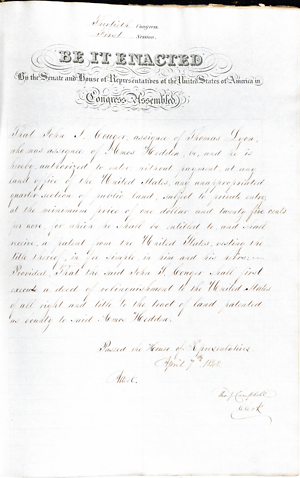 Congress,
First Session.
BE IT ENACTED
By the Senate and House of Representatives of the United States of America in
Congress Assembled,
That John J. Conger, assignee of Thomas Lyon,
who was assignee of Amos Hedden, be, and he is
hereby authorized to enter without payment at any
land office of the United States, any unappropriated
quarter section of public land, subject to private entry,
at the minimum price of one dollar and twenty five cents
per acre, for which he shall be entitled to and shall
receive, a patent from the United States, vesting the
title thereof, in fee simple in him and his
Provided, That the said John J. Conger shall first
execute a deed of relinquishment to the United States
of all right and title to the tract of land patented
as bounty to said Amos Hedden.
Passed the House of Representatives
April 7th
Attest.
Th. J. Campbell
Clerk